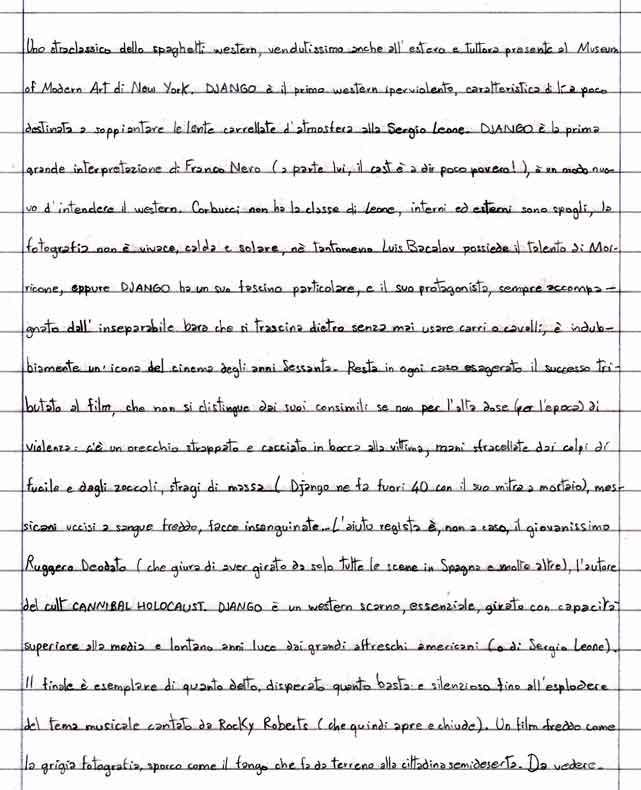 Uno straclassico dello spaghetti western, vendutissimo anche all'estero e tuttora presente al Museum
of Modern Art di New York. DJANGO è il primo western iperviolento, caratteristica di lì a poco
destinata a soppiantare le lente carrellate d'atmosfera alla Sergio Leone. DJANGO è la prima
grande interpretazione di Franco Nero (a parte lui, il cast è a dir poco povero!), è un modo nuo-
vo d'intendere il western. Corbucci non ha la classe di Leone, interni ed esterni sono spogli, la
fotografia non è vivace, calda e solare, nè tantomeno Luis Bacalov possiede il talento di Mor-
ricone, eppure DJANGO ha un suo fascino particolare, e il suo protagonista, sempre accompa-
gnato dall'inseparabile bara che si trascina dietro senza mai usare carri o cavalli, è indub-
biamente un'icona del cinema degli anni Sessanta. Resta in ogni caso esagerato il successo tri-
butato al film, che non si distingue dai suoi consimili se non per l'alta dose (per l'epoca) di
violenza: c'è un orecchio strappato e cacciato in bocca alla vittima, mani sfracellate dai colpi di
fucile e dagli zoccoli, stragi di massa (Django ne fa fuori 40 con il suo mitra a mortaio), mes-
sicani uccisi a sangue freddo, facce insanguinate... L'aiuto regista è, non a caso, il giovanissimo
Ruggero Deodato (che giura di aver girato da solo tutte le scene in Spagna e molte altre), l'autore
del cult CANNIBAL HOLOCAUST. DJANGO è un western scarno, essenziale, girato con capacità
superiore alla media e lontano anni luce dai grandi affreschi americani (o di Sergio Leone).
Il finale è esemplare di quanto detto, disperato quanto basta e silenzioso fino all'esplodere
del tema musicale cantato da Rocky Roberts (che quindi apre e chiude). Un film freddo come
la grigia fotografia, sporco come il fango che fa da terreno alla cittadina semideserta. Da vedere.